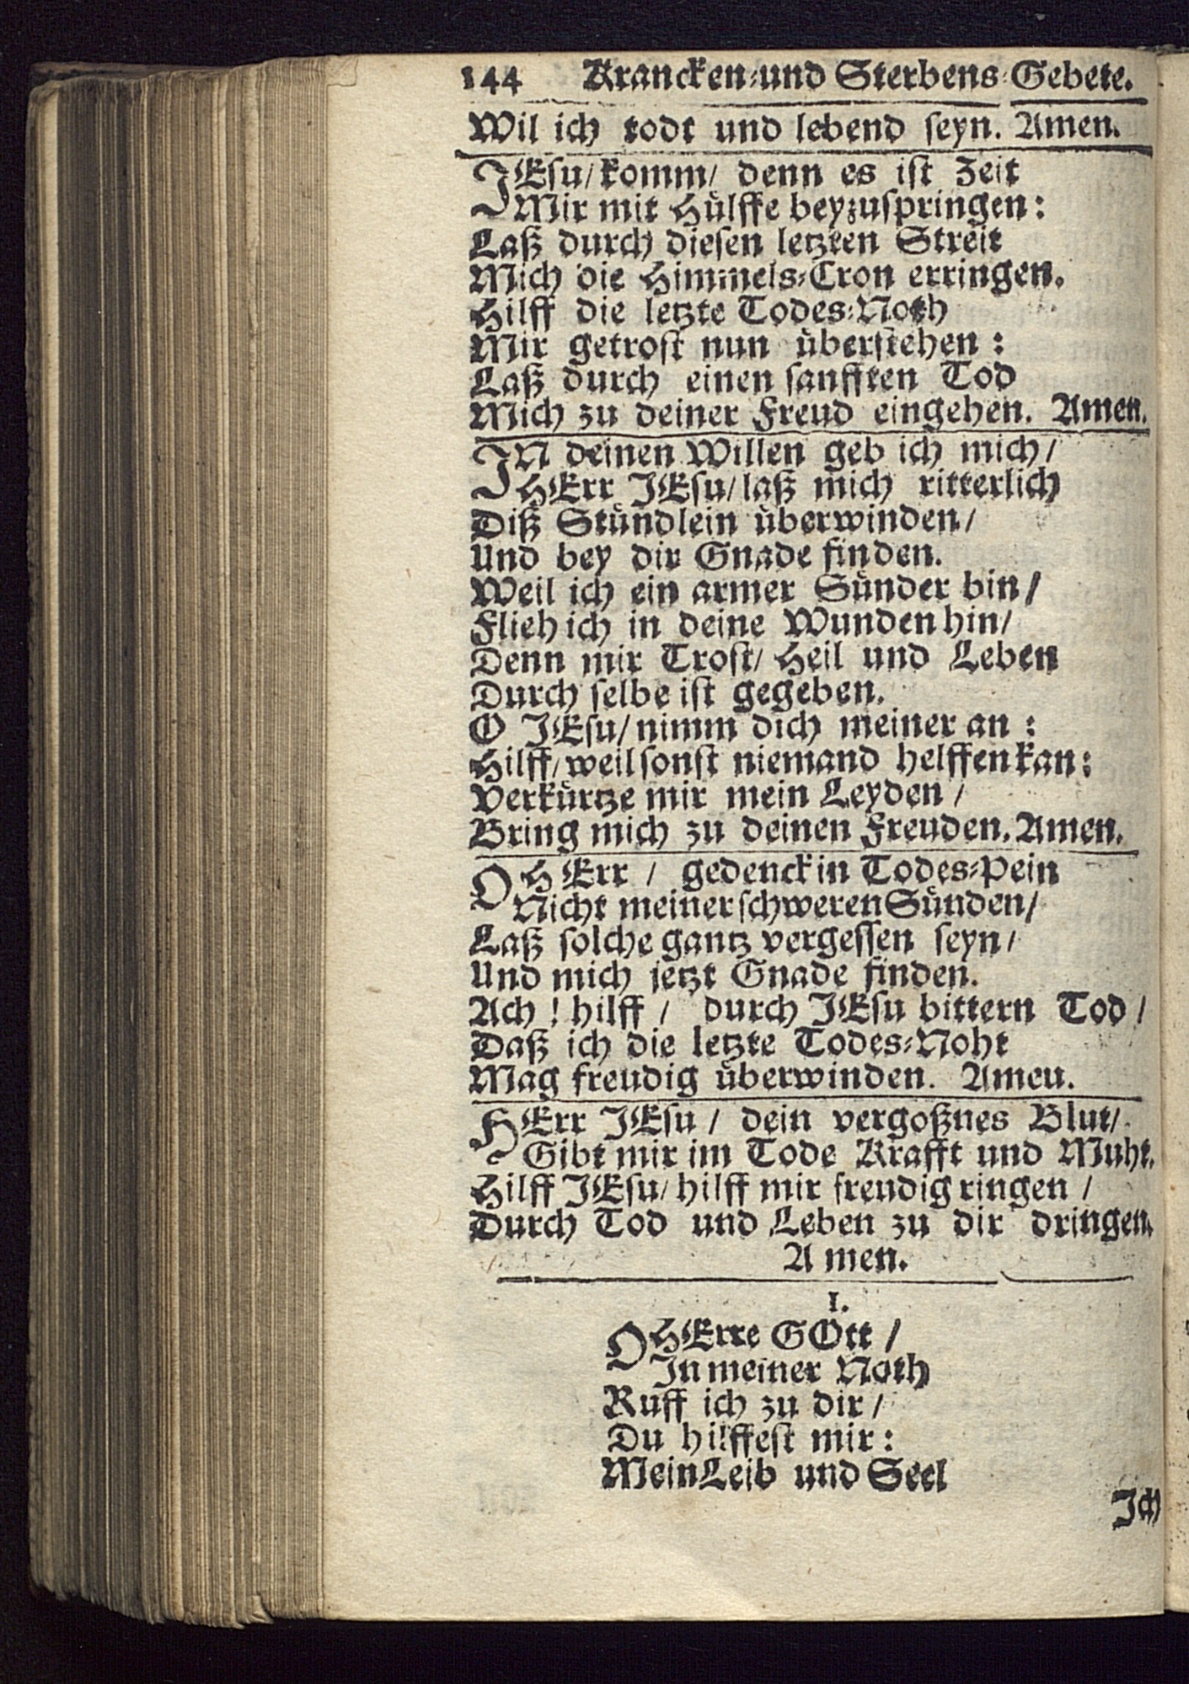 144 Krancken-und Sterbens-Gebete.
Wil ich todt und lebend seyn. Amen.
JEsu/ komm/ denn es ist Zeit
Mir mit Hülffe beyzuspringen:
Laß durch diesen letzten Streit
Mich die Himmels-Cron erringen.
Hilff die letzte Todes-Noth
Mir getrost nun überstehen:
Laß durch einen sanfften Tod
Mich zu deiner Freud eingehen. Amen.
JN deinen Willen geb ich mich/
HErr JEsu/ laß mich ritterlich
Diß Stündlein überwinden/
Und bey dir Gnade finden.
Weil ich ein armer Sünder bin/
Flieh ich in deine Wunden hin/
Denn mir Trost/ Heil und Leben
Durch selbe ist gegeben.
O JEsu/ nimm dich meiner an:
Hilff/ weil sonst niemand helffen kan:
Verkürtze mir mein Leyden/
Bring mich zu deinen Freuden. Amen.
O HErr / gedenck in Todes-Pein
Nicht meiner schweren Sünden/
Laß solche gantz vergessen seyn/
Und mich jetzt Gnade finden.
Ach! hilff / durch JEsu bittern Tod/
Daß ich die letzte Todes-Noht
Mag freudig überwinden. Ameu.
HErr JEsu / dein vergoßnes Blut/
Gibt mir im Tode Krafft und Muht.
Hilff JEsu/ hilff mir freudig ringen /
Durch Tod und Leben zu dir dringen.
Amen.
I.
O HErre GOtt /
Jn meiner Noth
Ruff ich zu dir /
Du hilffest mir:
Mein Leib und Seel
Jch